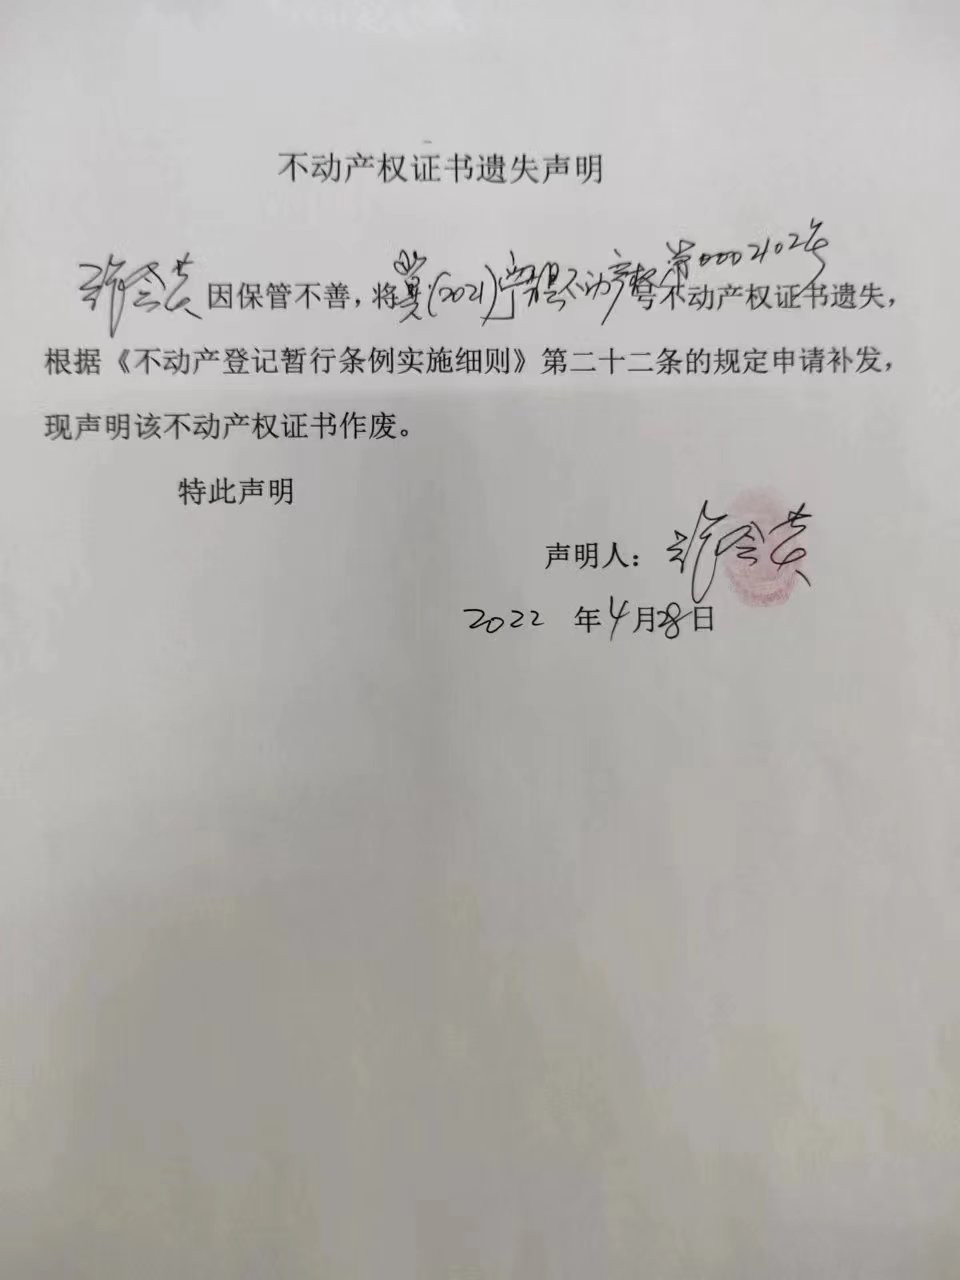 不动产权证书遗失声明
许会芬因保管不善，将冀(2021)宁晋县不动产权第0002102号号不动产权证书遗失，
根据《不动产登记暂行条例实施细则》第二十二条的规定申请补发，
现声明该不动产权证书作废。
特此声明
声明人：许会芬
2022 年4月28日